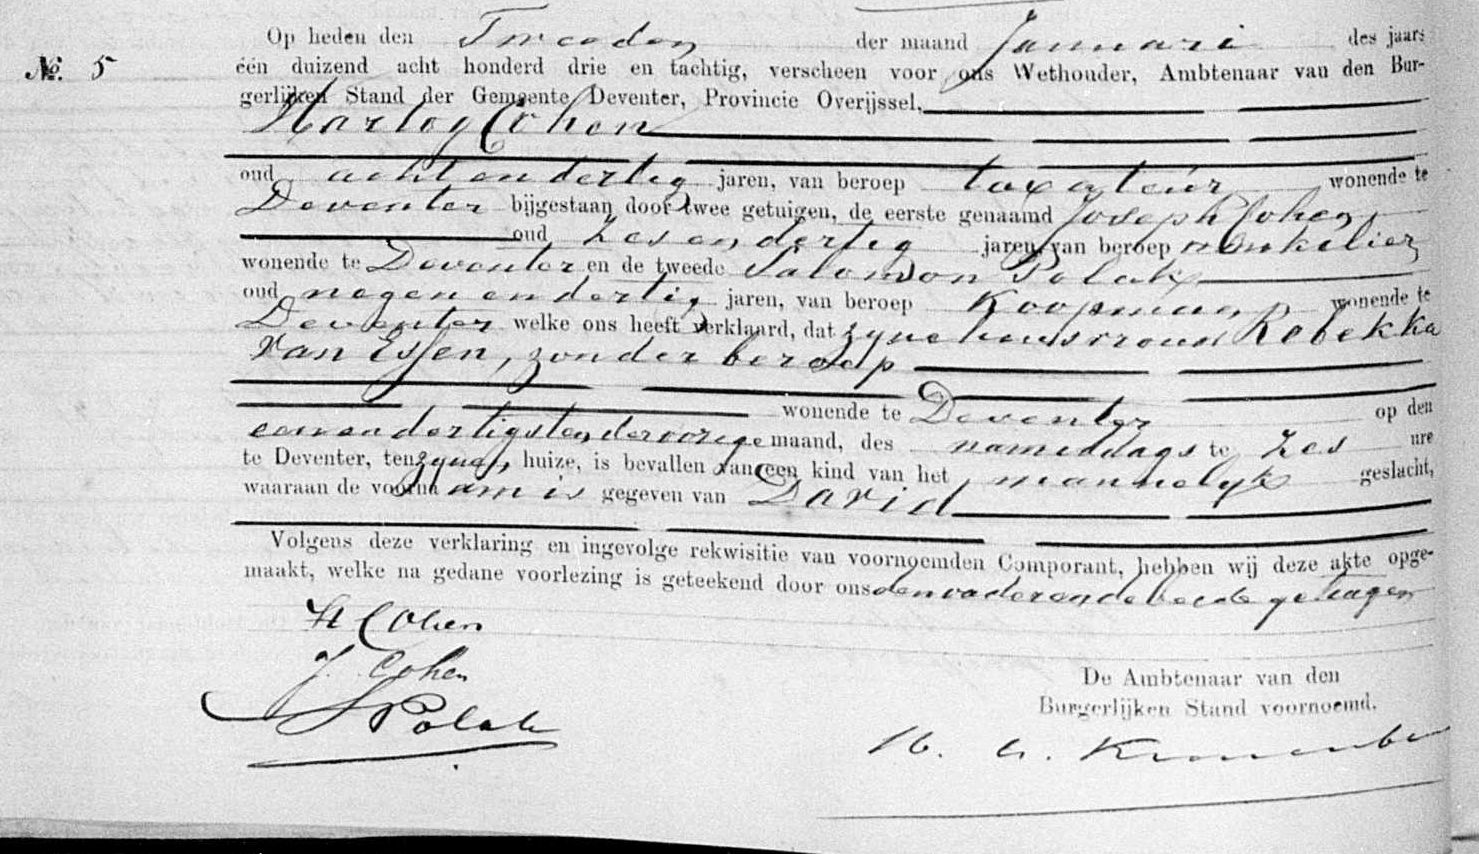 Op heden den Tweeden der maand Januari des jaars
No. 5 één duizend acht honderd drie en tachtig, verscheen voor ons Wethouder, Ambtenaar van den Bur-
gerlijken Stand der Gemeente Deventer, Provincie Overijssel,
Hartog Cohen
oud acht en dertig jaren, van beroep taxateur wonende te
Deventer bijgestaan door twee getuigen, de eerste genaamd Joseph Cohen,
oud zes en dertig jaren, van beroep winkelier
wonende te Deventer en de tweede Salomon Polak
oud negen en dertig jaren, van beroep Koopman wonende te
Deventer welke ons heeft verklaard, dat zyne huisvrouw Rebekka
van Essen, zonder beroep
wonende te Deventer op den
een en dertigsten der vorige maand, des namiddags te zes ure
te Deventer, ten zynen huize, is bevallen van een kind van het mannelyk geslacht,
waaraan de voornaam is gegeven van David
Volgens deze verklaring en ingevolge rekwisitie van voornoemden Comporant, hebben wij deze akte opge-
maakt, welke na gedane voorlezing is geteekend door ons den vader en de beide getuigen
H Cohen
J. Cohen
S Polak
De Ambtenaar van den
Burgerlijken Stand voornoemd.